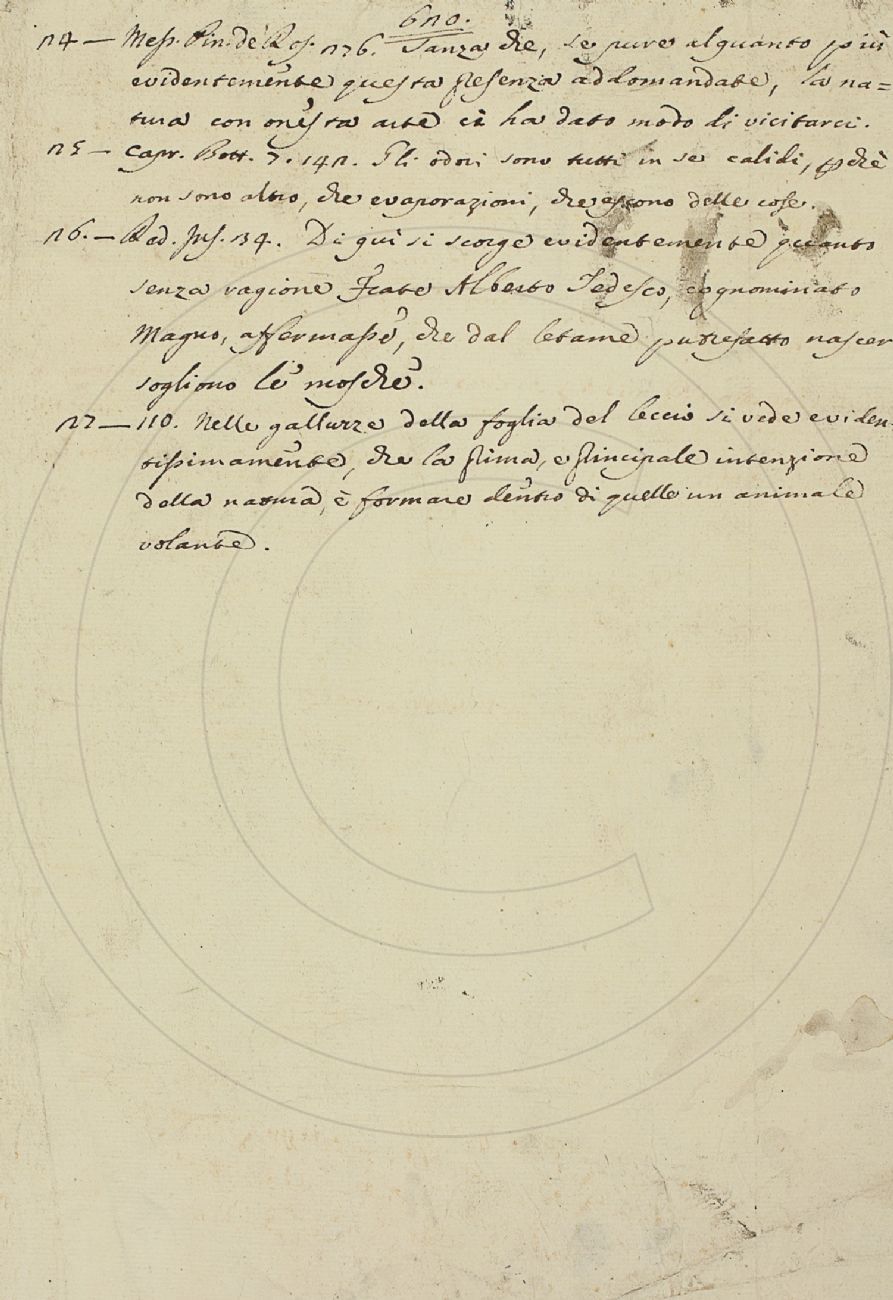 620.
24 — Mess. Pin. de' Ros. 276. Tanza che, se pure alquanto più
evidentemente questa presenza addomandate, la na=
tura con onesta arte ci ha dato modo di vicitarci.
25 — Capr. Bott. 7. 142. Gli odori sono tutti in se calidi, pchè
non sono altro, che evaporazioni, che escono delle cose.
26. — Red. Ins. 34. Di qui si scorge evidentemente quanto
senza ragione Frate Alberto Tedesco, cognominato
Magno, affermasse, che dal letame putrefatto nascer
sogliono le mosche.
27 — 110. Nelle galluzze della foglia del leccio si vede eviden-
tissimamente, che la prima, e principale intenzione
della natura è formare dentro di quelle un animale
volante.